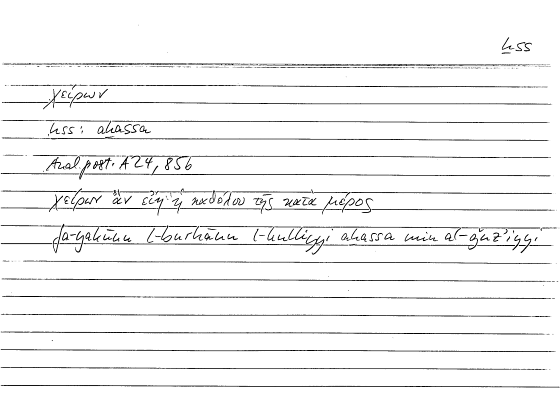 ḫss
χείρων
ḫss: aḫassa
Anal. post. A 24, 85b
χείρων ἂν εἴη ἡ καθόλου τῆς κατὰ μέρος
fa-yakūnu l-burhānu l-kulliyyi aḫassa min al-ǧuzʾiyyi